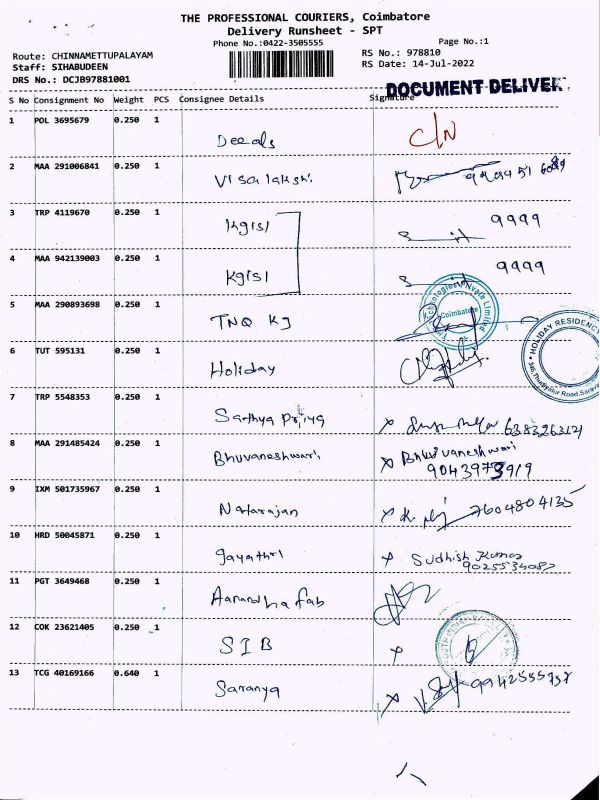 THE PROFESSIONAL COURIERS, Coimbatore
Delivery Runsheet - SPT
Phone No.:0422-3505555 Page No.:1
Route: CHINNAMETTUPALAYAM RS No.: 978810
Staff: SIHABUDEEN RS Date: 14-Jul-2022
DRS No.: DCJB97881001
DOCUMENT DELIVER
S No Consignment No Weight PCS Consignee Details Signature
1 POL 3695679 0.250 1 Deeals C/N
2 MAA 291006841 0.250 1 Visalakshi
3 TRP 4119670 0.250 1 Kgisl 9999
4 MAA 942139003 0.250 1 Kgisl 9999
5 MAA 290893698 0.250 1 TNQ KJ
Technologies Private Limited
Coimbatore
6 TUT 595131 0.250 1 Holiday
HOLIDAY RESIDENCY
7 TRP 5548353 0.250 1 Sathya Priya x 6383263121
8 MAA 291485424 0.250 1 Bhuvaneshwari x Bhuvaneshwari
9043973919
9 IXM 501735967 0.250 1 Natarajan x 7604804135
10 HRD 50045871 0.250 1 gayathri x Sudhish Kumar
11 PGT 3649468 0.250 1
12 COK 23621405 0.250 1 SIB x
13 TCG 40169166 0.640 1 Saranya x 9942555757